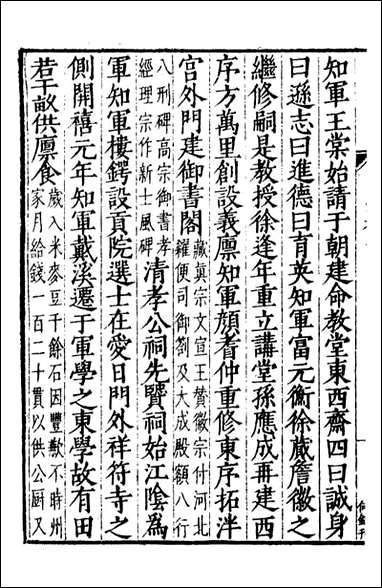 知軍王棠始請于朝建命教堂東西齋四曰誠身
曰遜志曰進德曰育英知軍富元衡徐蕆詹徽之
繼修嗣是教授徐逢年重立講堂孫應成再建西
序方萬里創設義廩知軍顔耆仲重修東序拓泮
宮外門建御書閣藏真宗文宣王賛徽宗付河北
糴便司御劄及大成殿額八行
八刑碑高宗御書孝
經理宗作新士風碑清孝公祠先賢祠始江陰為
軍知軍樓鍔設貢院選士在愛日門外祥符寺之
側開禧元年知軍戴溪遷于軍學之東學故有田
若干畝供廪食歲入米麥豆千餘石因豐歉不時州
家月給錢一百二十貫以供公厨又